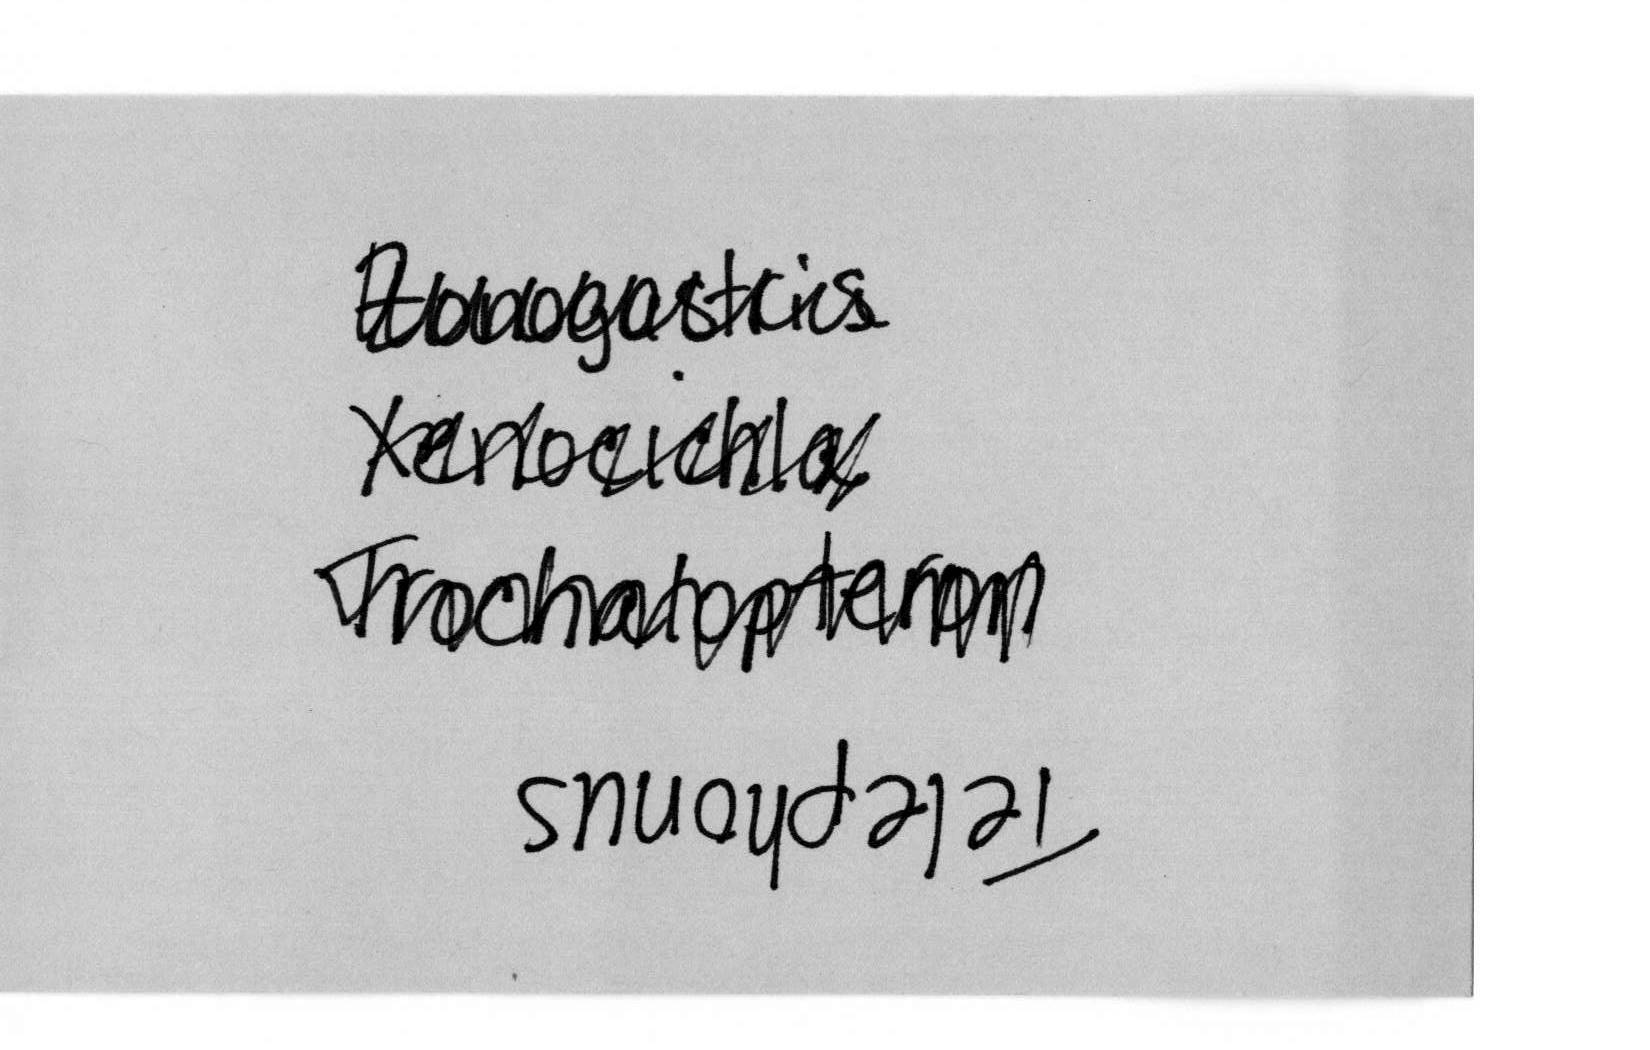 Zonogastris
Xenocichla
Trochalopteron
Telephonus